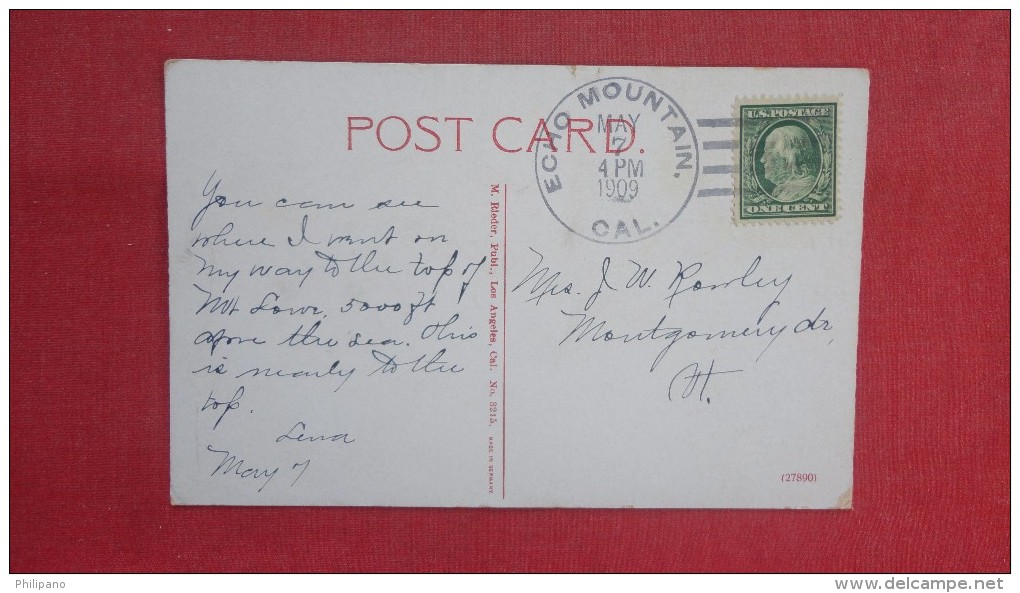 POST CARD.
ECHO MOUNTAIN,
MAY
7
4 PM
1909
CAL.
U.S. POSTAGE
ONE CENT
You can see
where I went on
my way to the top of
Mt Lowe, 5000 ft
above the sea. This
is nearly to the
top.
Lena
May 7
M. Rieder, Publ., Los Angeles, Cal. No. 3215.
MADE IN GERMANY.
Mrs. J W. Rowley
Montgomery
Vt.
(27890)
Philipano
www.delcampe.net